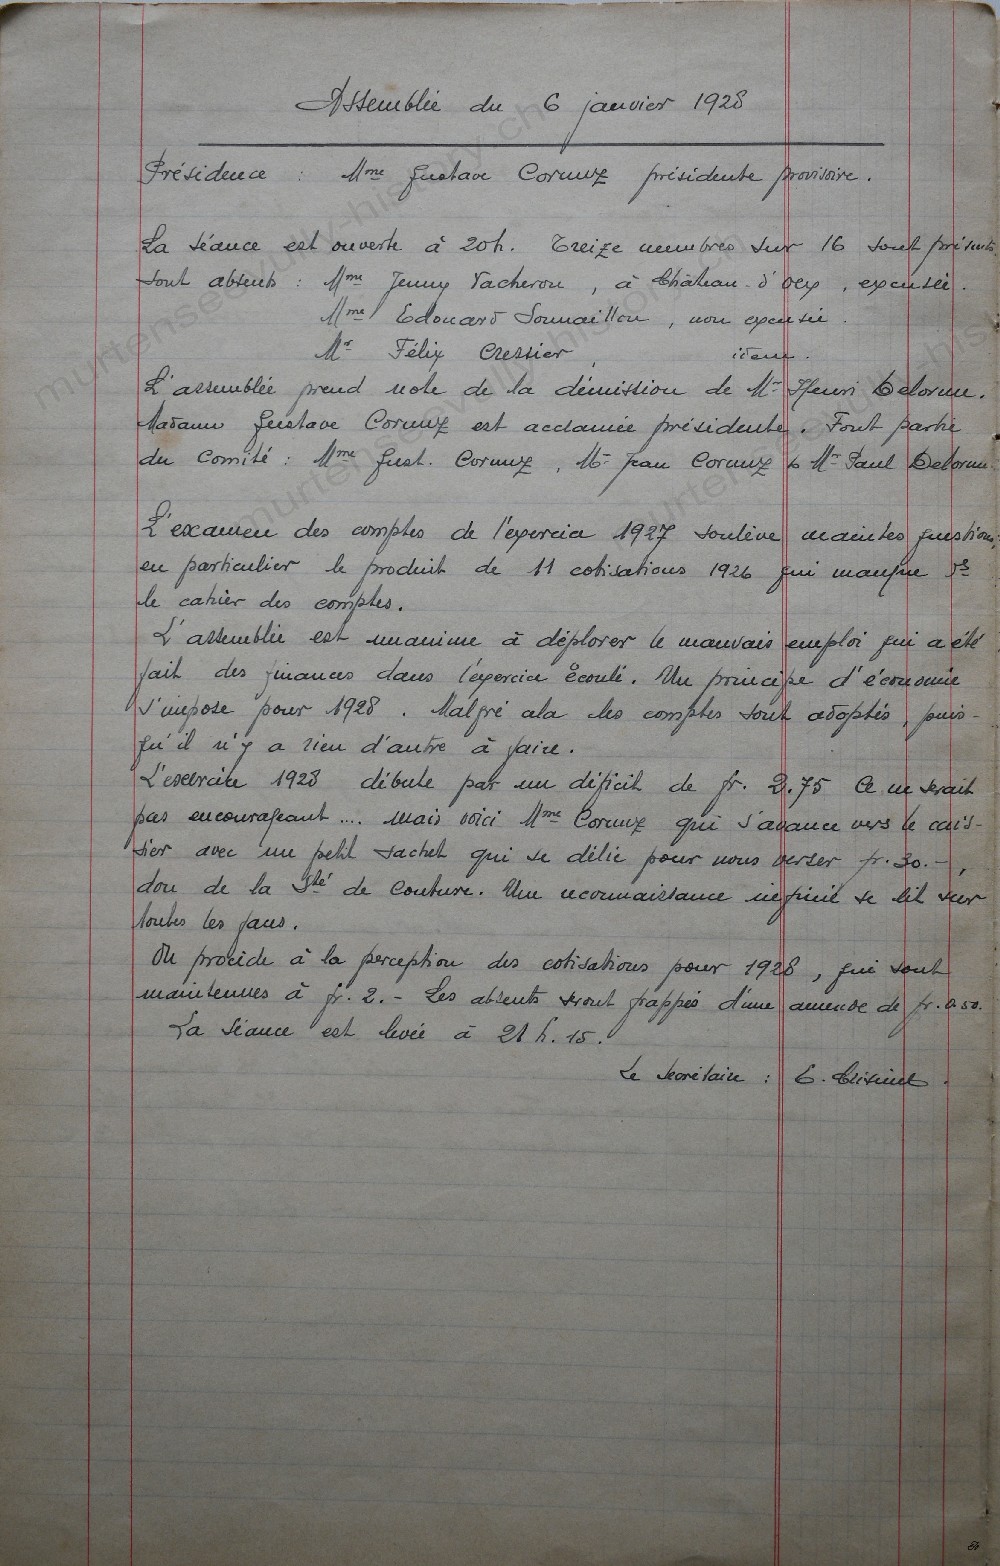 Assemblée du 6 janvier 1928
Présidence : Mme Gustave Cornuz présidente provisoire.
La séance est ouverte à 20h. Treize membres sur 16 sont présents.
Sont absents : Mme Jenny Vacheron, à Château-d'Oex, excusée.
Mme Edouard Sormaillon, non excusée.
Mr Félix Cressier, idem.
L'assemblée prend note de la démission de Mr Henri Delorme.
Madame Gustave Cornuz est acclamée présidente. Font partie
du Comité : Mme Gust. Cornuz, Mr Jean Cornuz & Mr Paul Delorme.
L'examen des comptes de l'exercice 1927 soulève maintes questions,
en particulier le produit de 11 cotisations 1926 qui manque ds
le cahier des comptes.
L'assemblée est unanime à déplorer le mauvais emploi qui a été
fait des finances dans l'exercice écoulé. Un principe d'économie
s'impose pour 1928. Malgré cela les comptes sont adoptés, puis-
qu'il n'y a rien d'autre à faire.
L'exercice 1928 débute par un déficit de fr. 2.75 Ce ne serait
pas encourageant .... mais voici Mme Cornuz qui s'avance vers le cais-
sier avec un petit sachet qui se délie pour nous verser fr. 30.-,
don de la Sté de Couture. Une reconnaissance infinie se lit sur
toutes les faces.
On procède à la perception des cotisations pour 1928, qui sont
maintenues à fr. 2.- Les absents seront frappés d'une amende de fr. 0.50.
La séance est levée à 21 h. 15.
Le secrétaire : E. Crisinel.
murtenseevully-history.ch
murtenseevully-history.ch